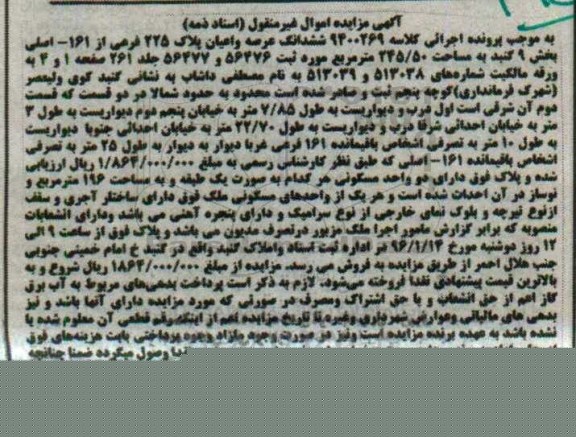 آگهی مزایده اموال غیرمنقول (اسناد ذمه)
به موجب پرونده اجرائی کلاسه ۹۴۰۰۲۶۹ ششدانگ عرصه واعیان پلاک ۲۲۵ فرعی از ۱۶۱- اصلی
بخش ۹ گنبد به مساحت ۲۴۵/۵۰ مترمربع مورد ثبت ۵۶۴۷۶ و ۵۶۴۷۷ جلد ۲۶۱ صفحه ۱ و ۴ به
ورقه مالکیت شماره‌های ۵۱۳۰۳۸ و ۵۱۳۰۳۹ به نام مصطفی داشاب به نشانی گنبد کوی ولیعصر
(شهرک فرمانداری)کوچه پنجم ثبت و صادر شده است محدود به حدود شمالا در دو قسمت که قسمت
دوم آن شرقی است اول درب و دیواریست به طول ۷/۸۵ متر به خیابان پنجم دوم دیواریست به طول ۳
متر به خیابان احداثی شرقا درب و دیواریست به طول ۲۲/۷۰ متر به خیابان احداثی جنوبا دیواریست
به طول ۱۰ متر به تصرفی اشخاص باقیمانده ۱۶۱ فرعی غربا دیوار به دیوار به طول ۲۵ متر به تصرفی
اشخاص باقیمانده ۱۶۱- اصلی که طبق نظر کارشناس رسمی به مبلغ ۱/۸۶۴/۰۰۰/۰۰۰ ریال ارزیابی
شده و پلاک فوق دارای دو واحد مسکونی هر کدام به صورت یک طبقه و به مساحت ۱۹۶ مترمربع و
نوساز در آن احداث شده است و هر یک از واحدهای مسکونی ملک فوق دارای ساختار آجری و سقف
ازنوع تیرچه و بلوک نمای خارجی از نوع سرامیک و دارای پنجره آهنی می باشد ودارای انشعابات
منصوبه که برابر گزارش مامور اجرا ملک مزبور درتصرف مدیون می باشد و پلاک فوق از ساعت ۹ الی
۱۲ روز دوشنبه مورخ ۹۶/۱/۱۴ در اداره ثبت اسناد واملاک گنبد واقع در گنبد خ امام خمینی جنوبی
جنب هلال احمر از طریق مزایده به فروش می رسد. مزایده از مبلغ ۱۸۶۴/۰۰۰/۰۰۰ ریال شروع و به
بالاترین قیمت پیشنهادی نقدا فروخته می‌شود. لازم به ذکر است پرداخت بدهی‌های مربوط به آب برق
گاز اعم از حق انشعاب و یا حق اشتراک ومصرف در صورتی که مورد مزایده دارای آنها باشد و نیز
بدهی های مالیاتی وعوارض شهرداری وغیره تا تاریخ مزایده اعم از اینکه رقم قطعی آن معلوم شده یا
نشده باشد به عهده برنده مزایده است ونیز در صورت وجود مازاد وجوه پرداختی بابت هزینه‌های فوق
وصول میگردد ضمنا چنانچه